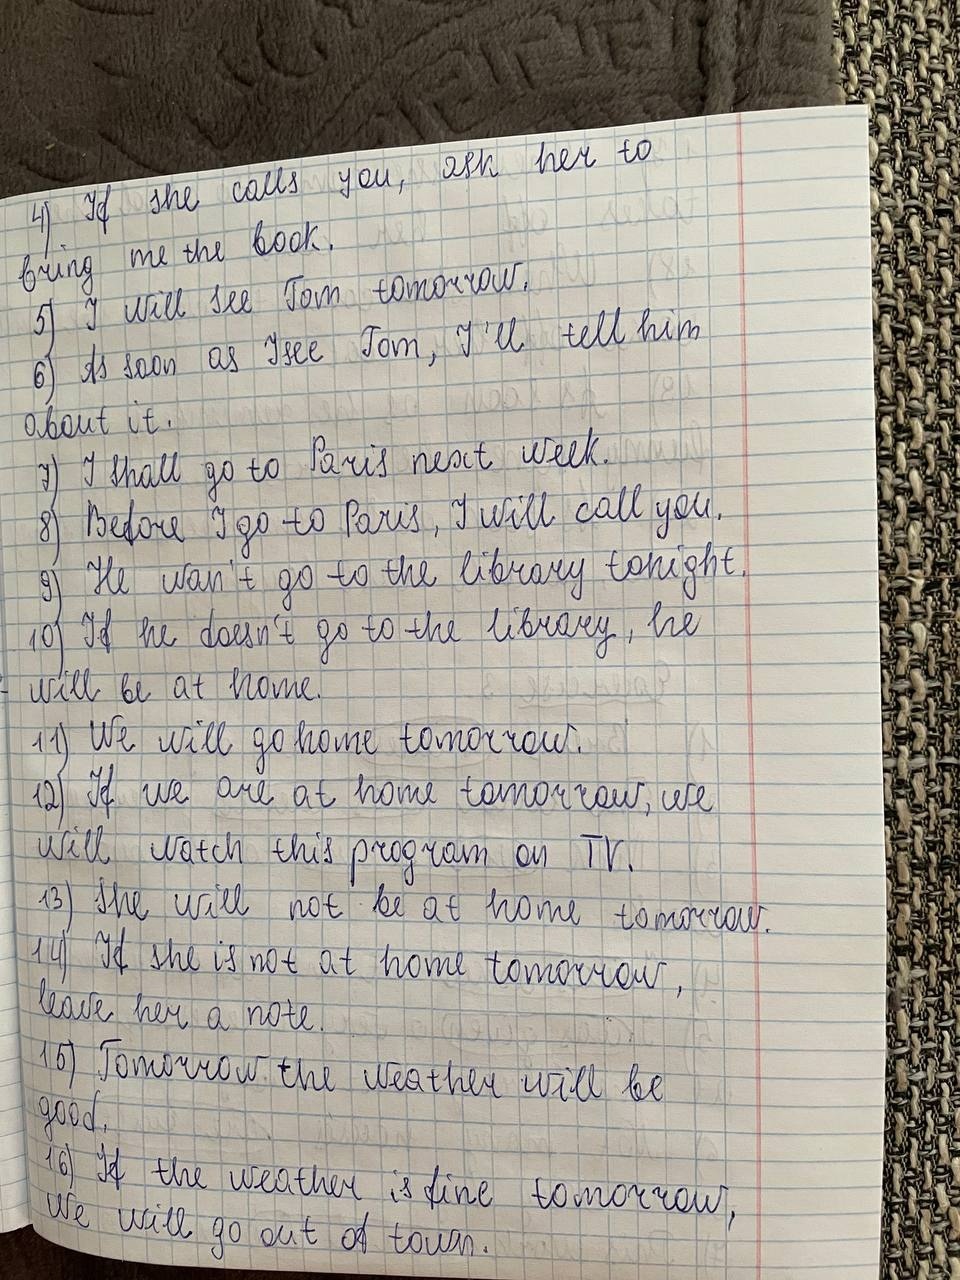 4) If she calls you, ask her to
bring me the book.
5) I will see Tom tomorrow.
6) As soon as I see Tom, I'll tell him
about it.
7) I shall go to Paris next week.
8) Before I go to Paris, I will call you.
9) He wan't go to the library tonight.
10) If he doesn't go to the library, he
will be at home.
11) We will go home tomorrow.
12) If we are at home tomorrow, we
will watch this program on TV.
13) She will not be at home tomorrow.
14) If she is not at home tomorrow,
leave her a note.
15) Tomorrow the weather will be
good.
16) If the weather is fine tomorrow,
we will go out of town.